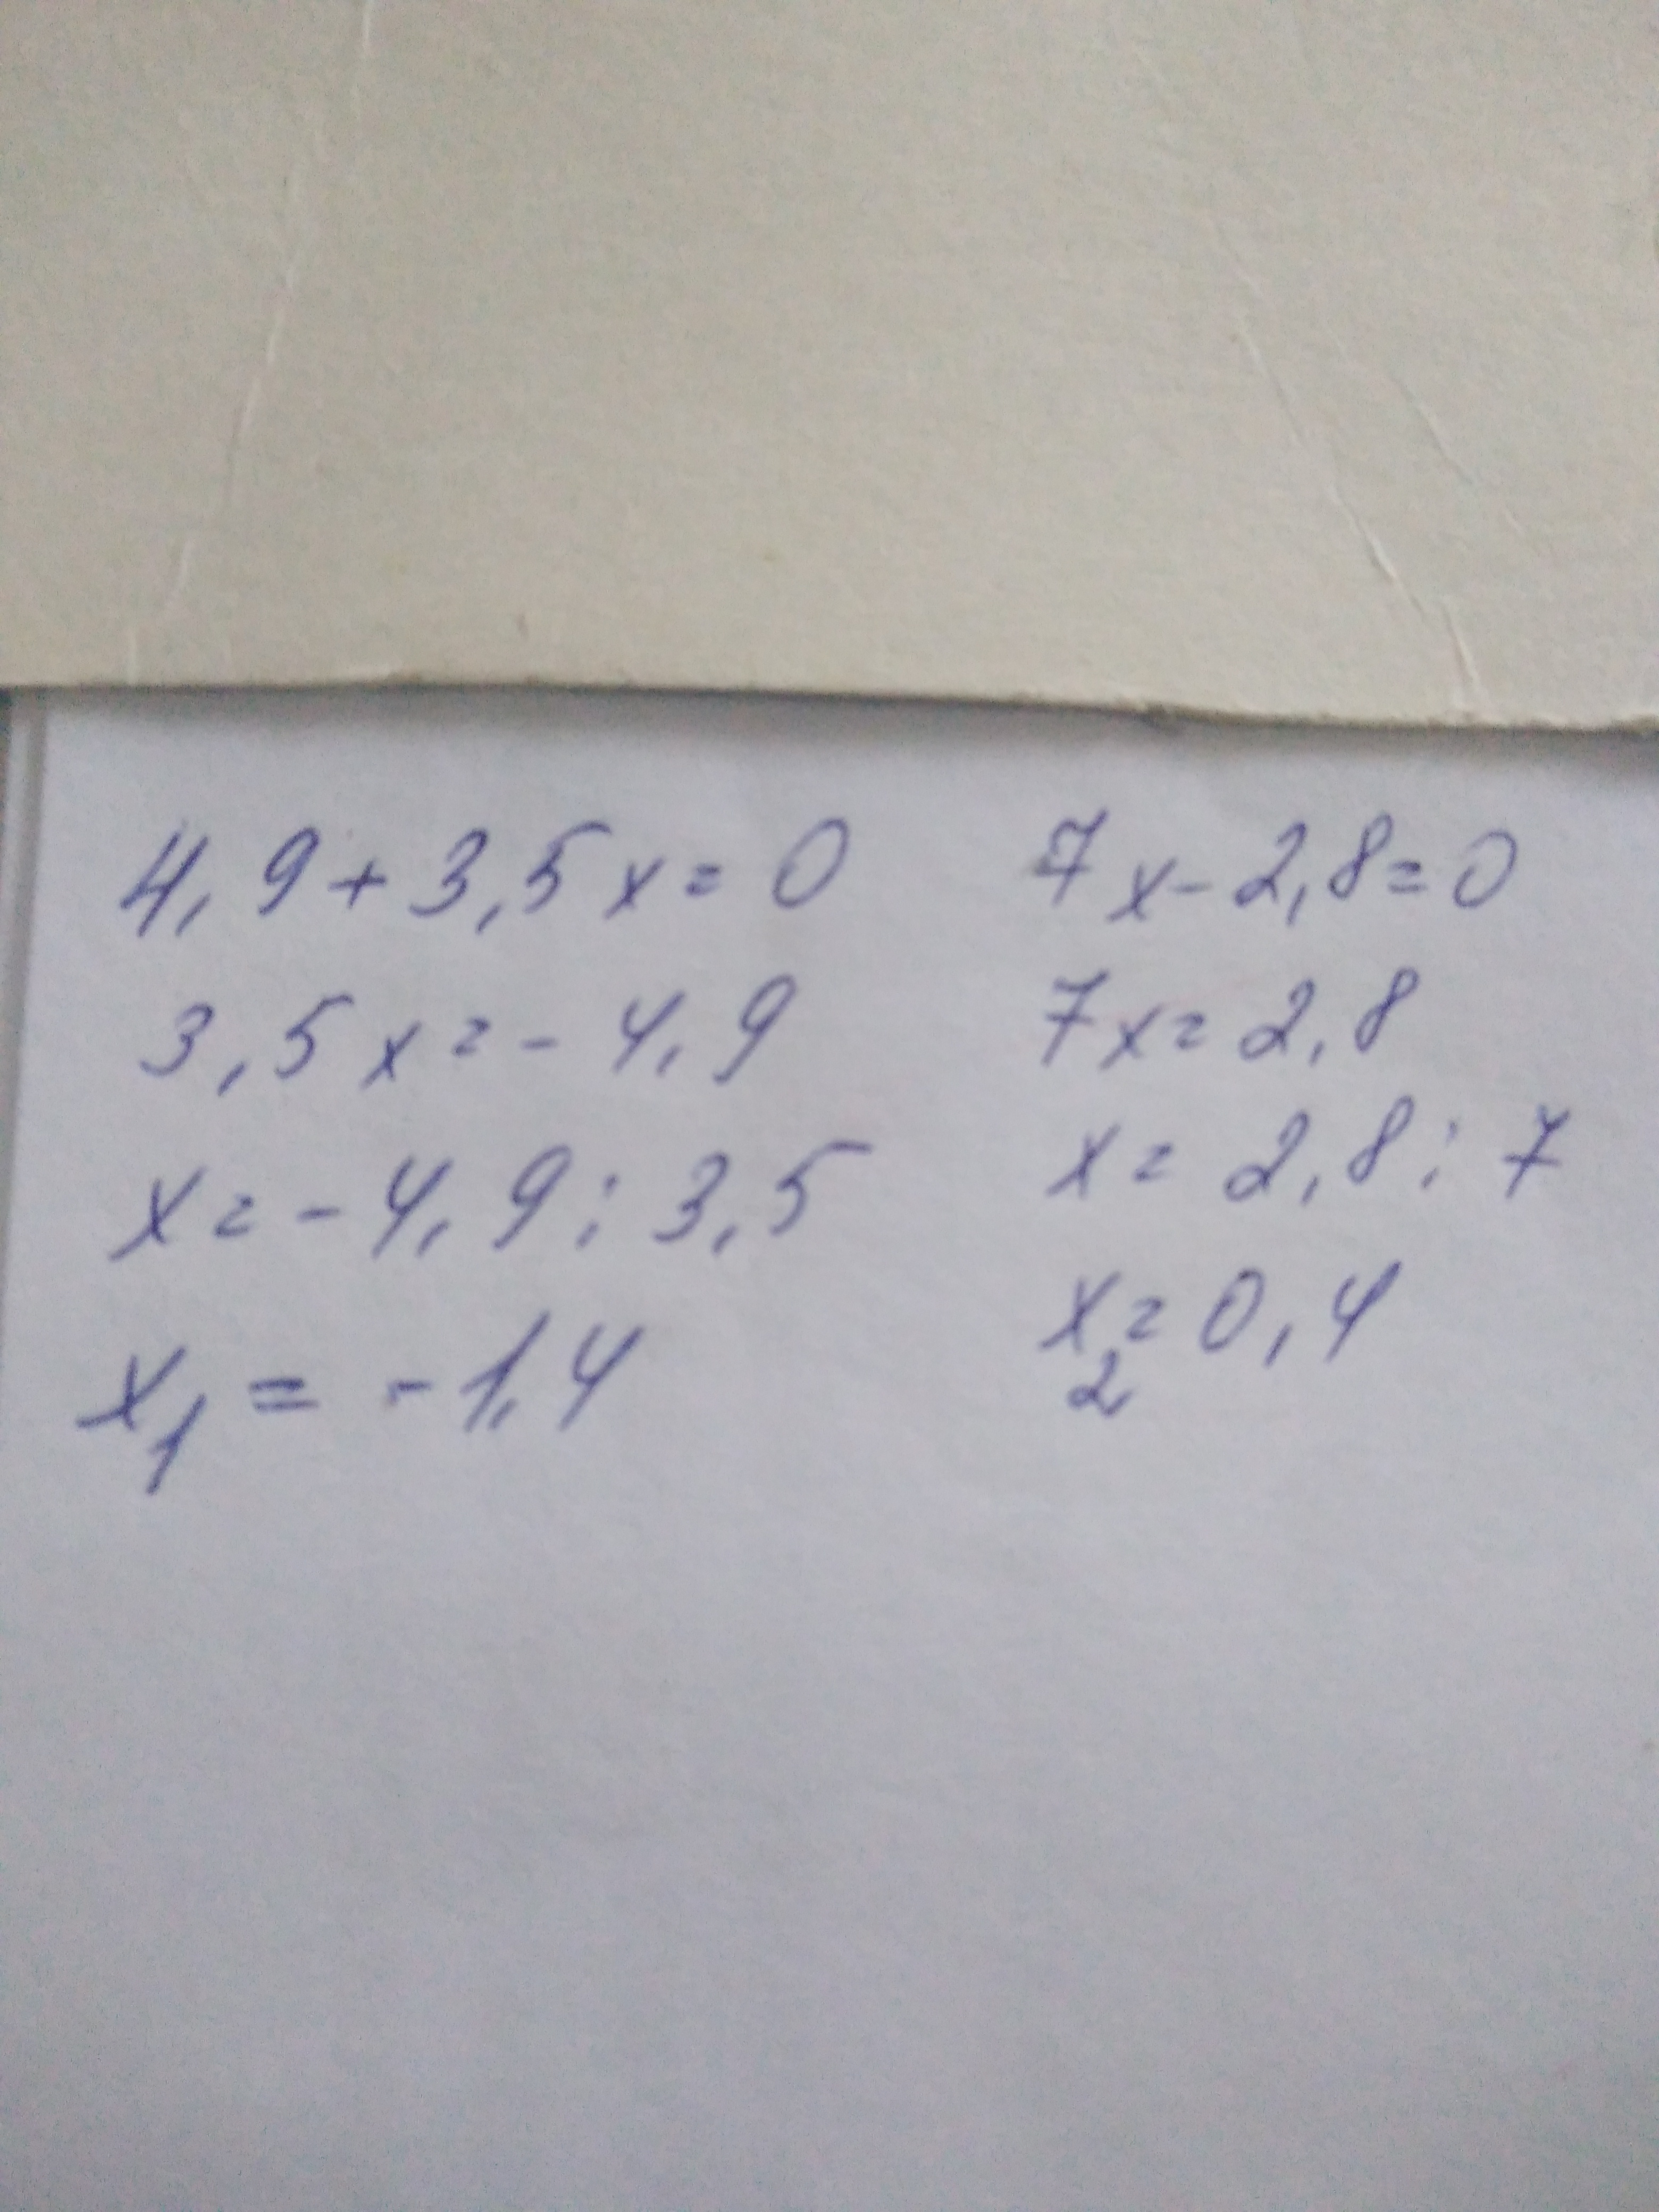 4,9+3,5x=0
3,5x=-4,9
x=-4,9:3,5
x₁=-1,4
7x-2,8=0
7x=2,8
x=2,8:7
x₂=0,4